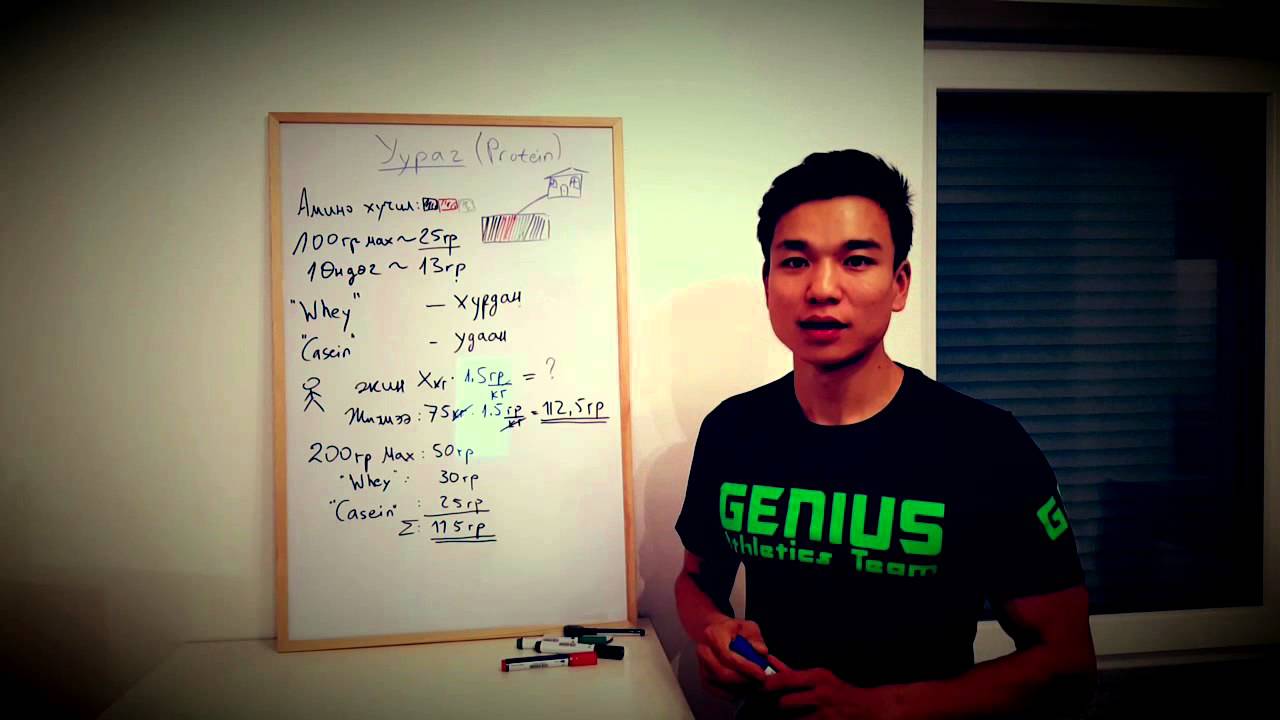 Уураг (Protein)
Амино хүчил:
100гр мах ~ 25гр
1 Өндөг ~ 13гр
"Whey" – Хурдан
"Casein" – Удаан
жин Xкг · 1.5гр/кг = ?
Жишээ: 75кг · 1.5гр/кг = 112,5гр
200гр мах: 50гр
"Whey": 30гр
"Casein": 25гр
Σ: 115гр
GENIUS
Athletics Team
G